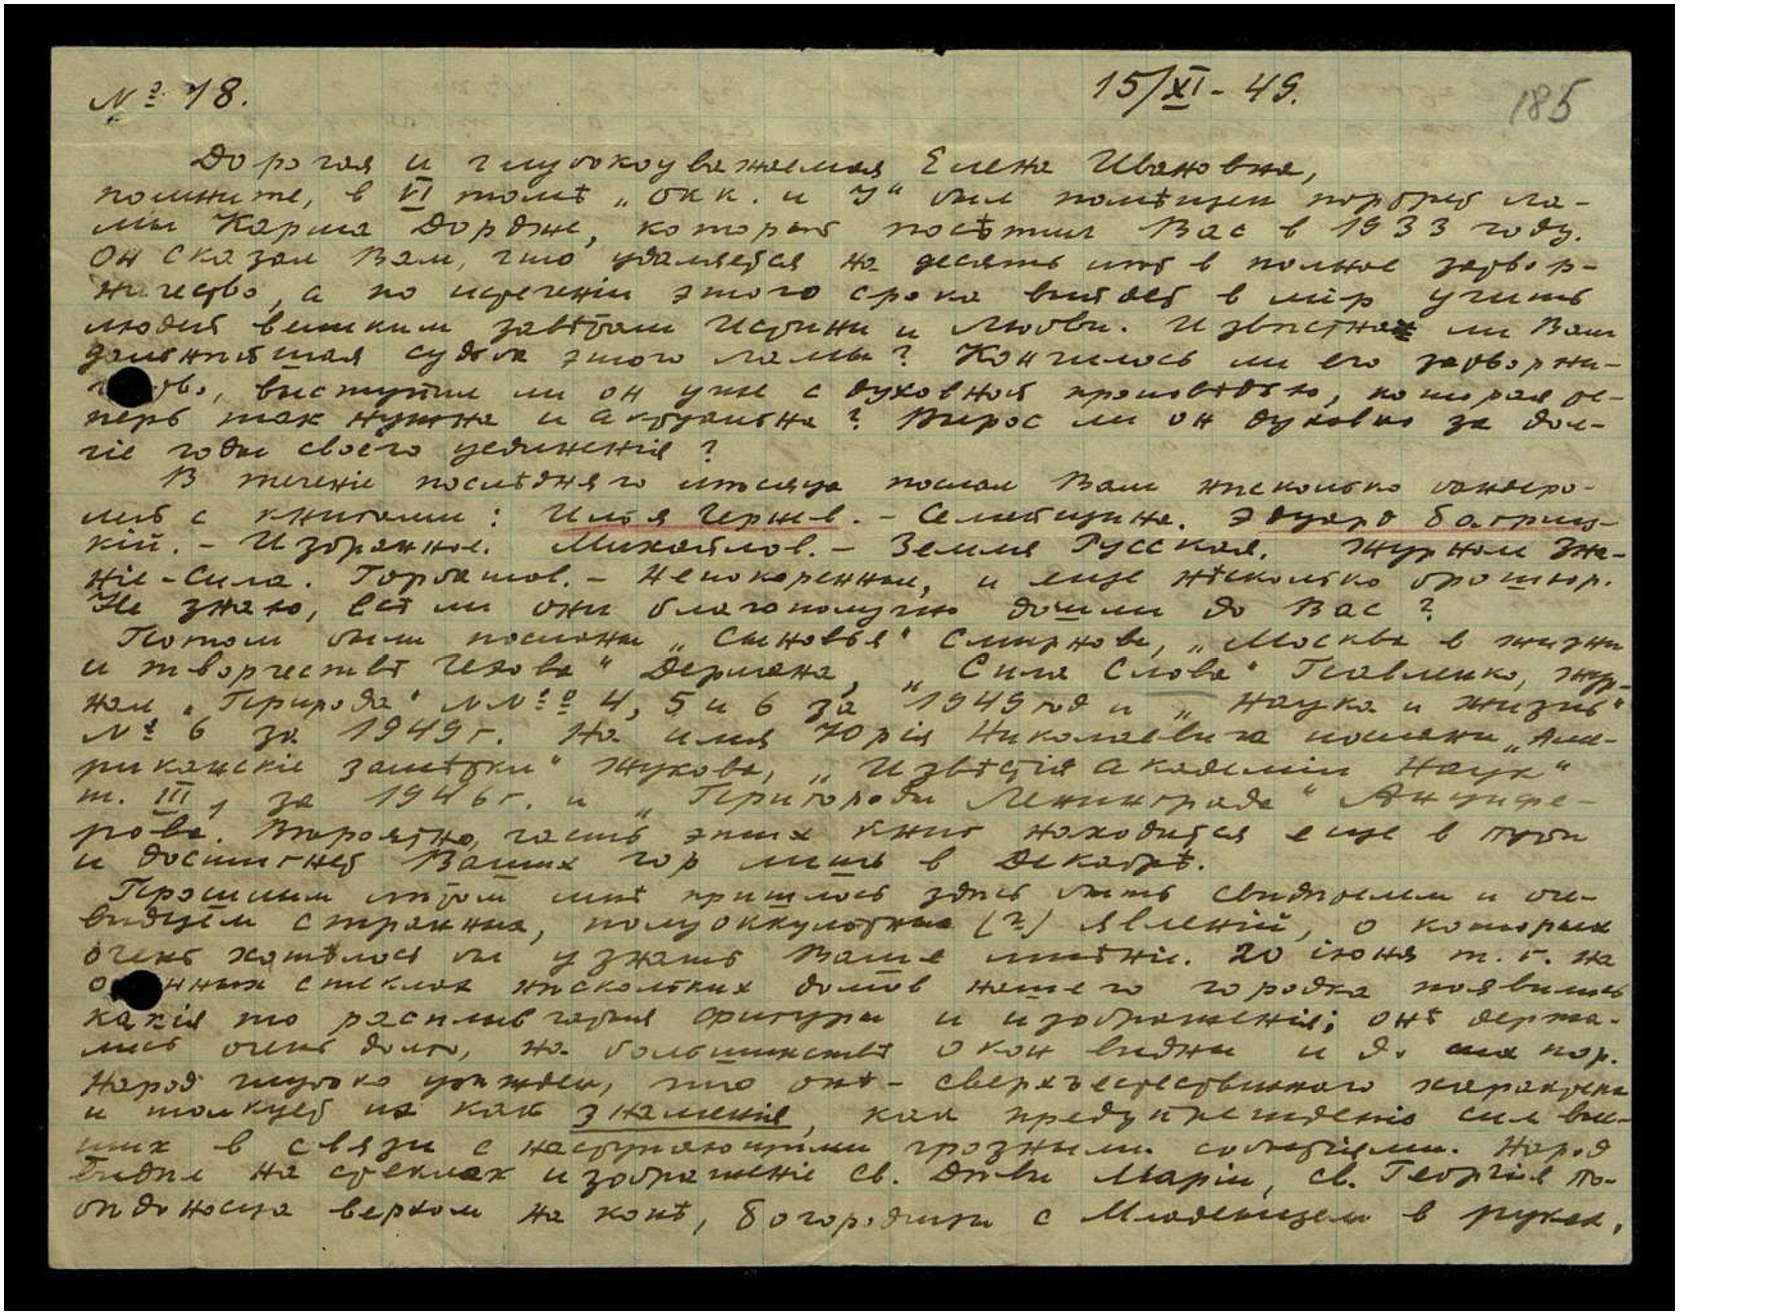 № 18.
15/XI - 49.
185
Дорогая и глубокоуважаемая Елена Ивановна,
помните, в VI томѣ „Окк. и Й“ был помѣщен портрет ла-
мы Карма Дордже, который посѣтил Вас в 1933 году.
Он сказал Вам, что удаляется на десять лѣт в полное затвор-
ничество, а по истеченіи этого срока выйдет в мір учить
людей великим завѣтам Истины и Любви. Извѣстна ли Вам
дальнѣйшая судьба этого ламы? Кончилось ли его затворни-
чество, выступил ли он уже с духовной проповѣдью, которая те-
перь так нужна и актуальна? Вырос ли он духовно за дол-
гіе годы своего уединенія?
В теченіе послѣдняго мѣсяца послал Вам нѣсколько бандеро-
лей с книгами: Илья Чернев. - Семейщина. Эдуард Багриц-
кій. - Избранное. Михайлов. - Земля Русская. Журнал Зна-
ніе-Сила. Горбатов. - Непокоренные, и еще нѣсколько брошюр.
Не знаю, всѣ ли они благополучно дошли до Вас?
Потом были посланы „Сыновья“ Смирнова, „Москва в жизни
и творчествѣ Чехова“ Дермана, „Сила Слова“ Павленко, жур-
нал „Природа“ №№ 4, 5 и 6 за 1949 год и „Наука и жизнь“
№ 6 за 1949 г. На имя Юрія Николаевича посланы „Аме-
риканскіе замѣтки“ Жукова, „Извѣстія Академіи Наук“
т. III, за 1946 г. и „Пригороды Ленинграда“ Анцифе-
рова. Вѣроятно, часть этих книг находится еще в пути
и достигнет Ваших гор лишь в декабрѣ.
Прошлым лѣтом мнѣ пришлось здѣсь быть свидѣтелем и оче-
видцем странных, полуоккультных (?) явленій, о которых
очень хотѣлось бы узнать Ваше мнѣніе. 20 іюня т. г. на
оконных стеклах нѣскольких домов нашего городка появились
какія то расплывчатыя фигуры и изображенія; онѣ держа-
лись очень долго, на большинствѣ окон видны и до сих пор.
Народ глубоко убѣжден, что онѣ - сверхъестественного характера
и толкует их как знаменія, как предупрежденіе сил выс-
ших в связи с наступающими грозными событіями. Народ
видѣл на стеклах изображеніе св. Дѣвы Маріи, св. Георгія По-
бѣдоносца верхом на конѣ, Богородицы с Младенцем в руках,